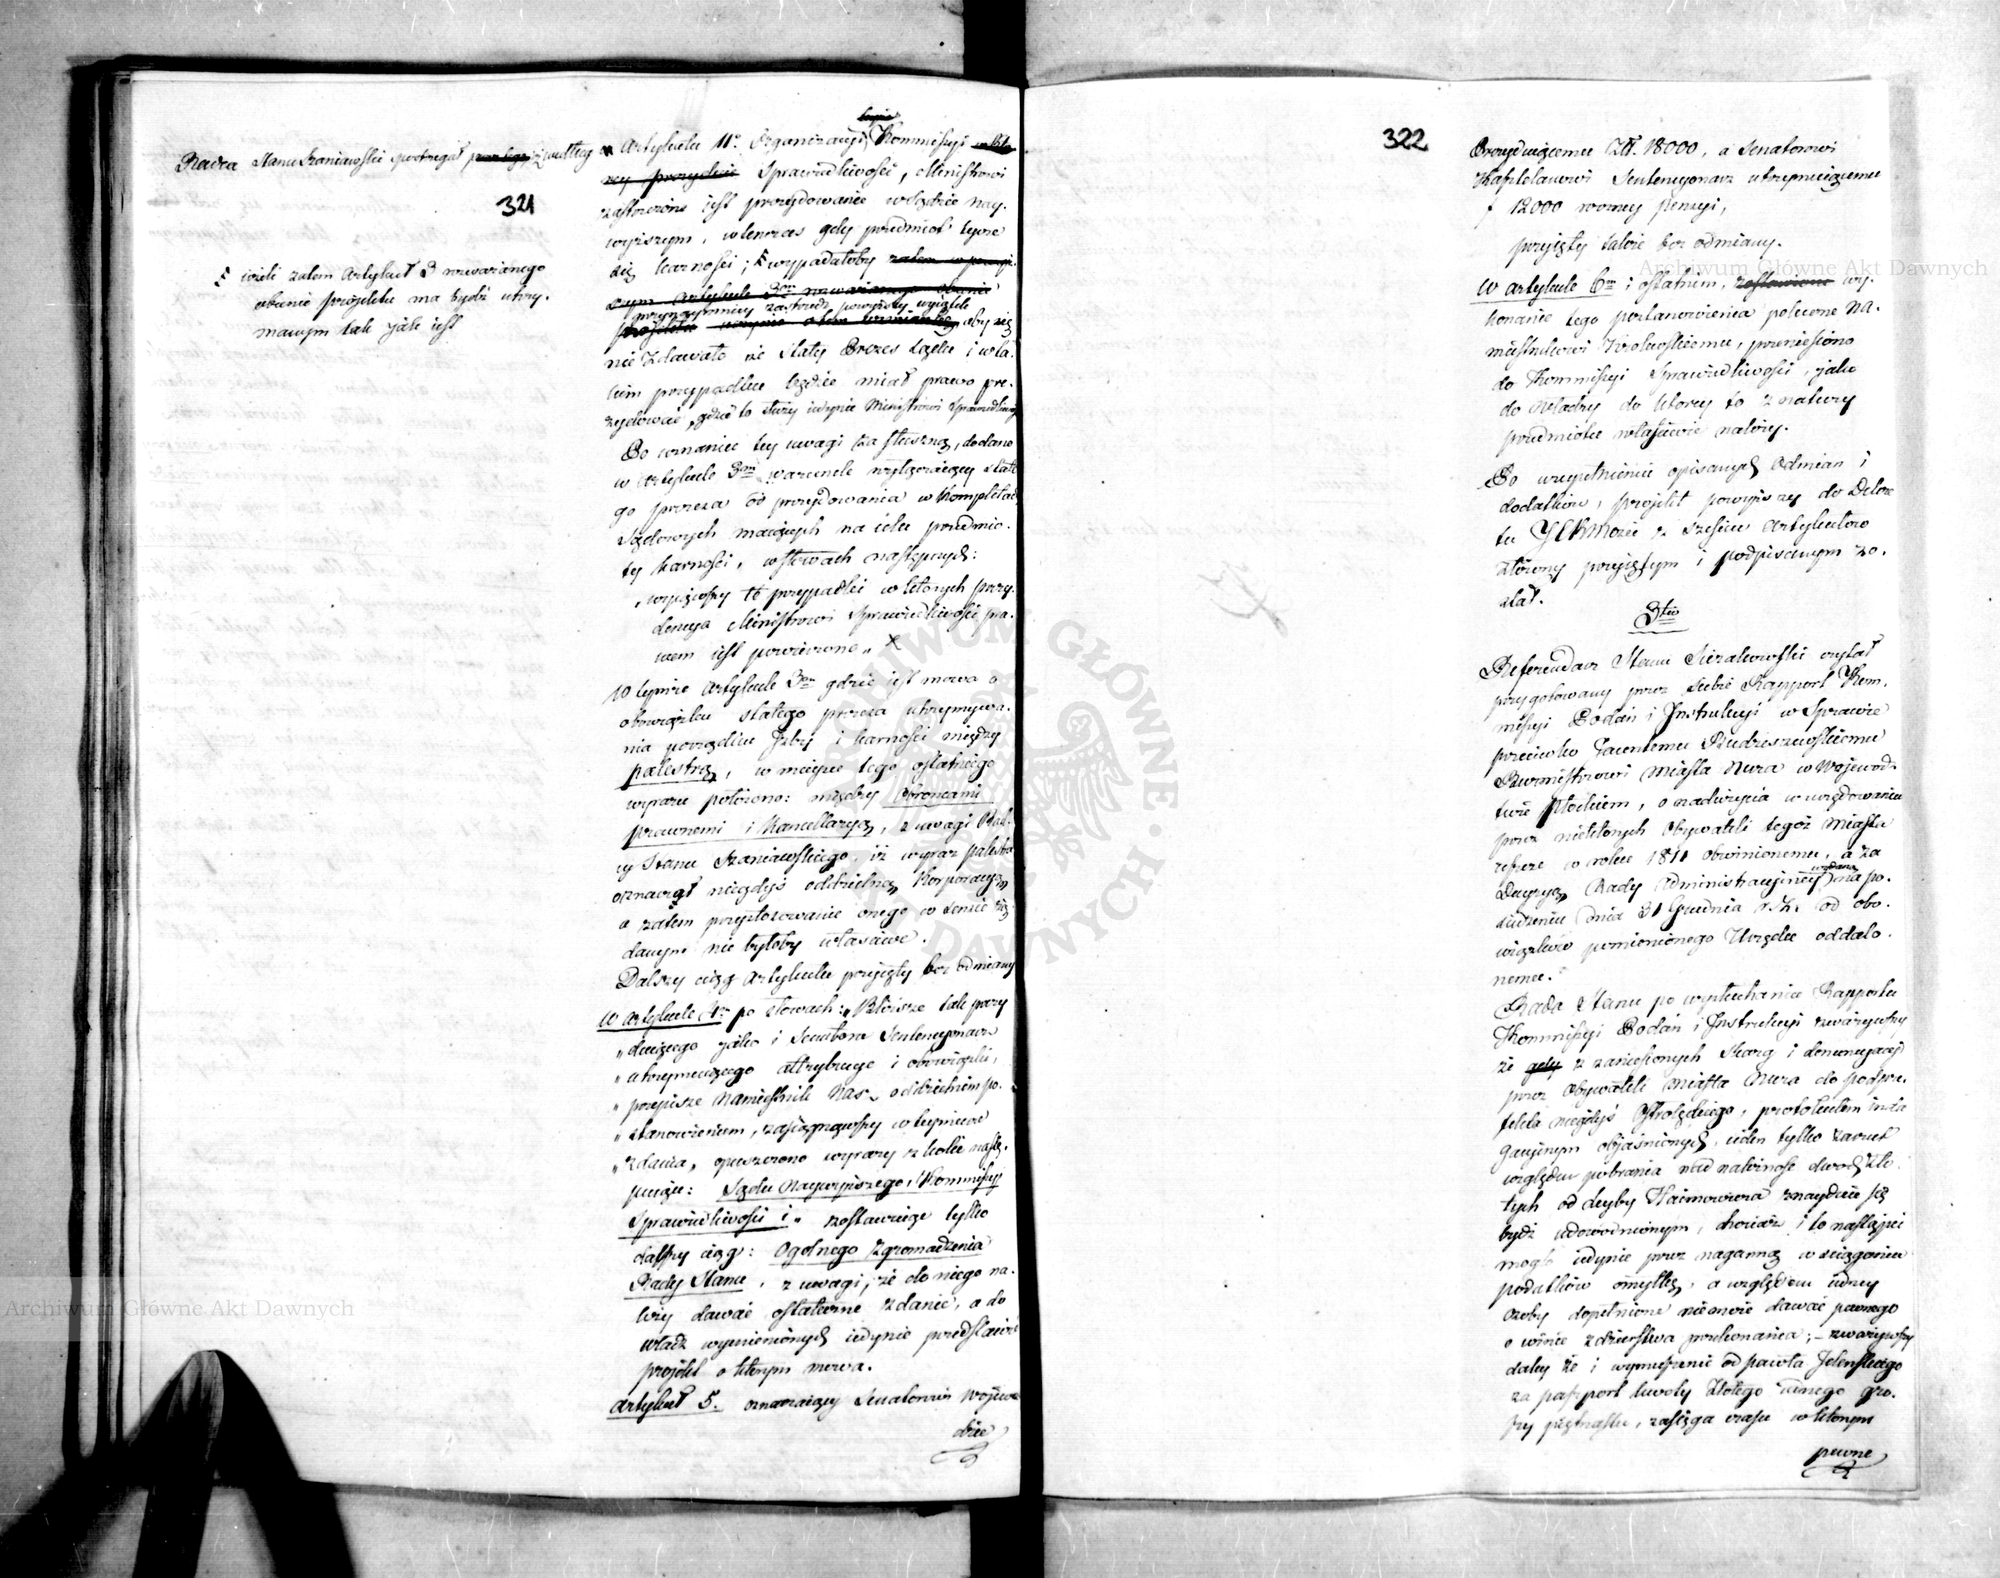 321
Radca Stanu Szaniawski postrzegał że według
Artykułu 11o Organizacyi Kommissyi
Sprawiedliwości, Ministrowi
zastrzeżone iest prezydowanie w Sądzie nay-
wyższym, wtenczas gdy przedmiot tycze
się karności; wypadałoby
§ ieżeli zatem Artykuł 3 rozważanego
obecnie projektu ma bydź utrzy-
manym tak jak iest
aby się
nie zdawało że stały Prezes Sądu i w ta-
kim przypadku będzie miał prawo pre-
zydować, gdzie to służy iedynie Ministrowi Sprawiedliwości
Po uznaniu tey uwagi za słuszną, dodano
w Artykule 3m warunek wyłączaiący stałe-
go prezesa od prezydowania w Kompletach
Sądowych maiących na celu przedmio-
ty karności, w słowach następnych:
„wyiąwszy te przypadki w których prezy-
dencya Ministrowi Sprawiedliwości pra-
wem iest powierzone„ X
W tymże Artykule 3m gdzie iest mowa o
obowiązku stałego prezesa utrzymywa-
nia porządku Izby i karności między
palestrą, w mieysce tego ostatniego
wyrazu położono: między Obroncami
prawnemi i Kancellaryą, z uwagi Rad-
cy Stanu Szaniawskiego, iż wyraz palestra
oznaczał niegdyś oddzielną Korporacyą
a zatem przystosowanie onego w sensie
danym nie byłoby właściwe.
Dalszy ciąg Artykułu przyięty bez odmiany
W Artykule 4m po słowach: „Bliższe tak prezy
„duiącego jako i Senatora Sentencyonarz
„utrzymuiącego attrybucye i obowiązki,
„przepisze Namiestnik Nasz oddzielnem po-
„stanowieniem, zasiągnąwszy w tey mierze
„zdania„ opuszczono wyrazy z kolei nastę-
puiące: Sądu Naywyższego, Kommissyi
Sprawiedliwości i„ zostawuiąc tylko
dalszy ciąg: Ogolnego Zgromadzenia
Rady Stanu, z uwagi, że do niego na-
leży dawać ostateczne zdanie, a do
władz wymienionych iedynie przedstawić
projekt o którym mowa.
Artykuł 5. oznaczaiący Senatorowi Wojewo
dzie
322
Prezyduiącemu Złł. 18000, a Senatorowi
Kasztelanowi Sentencyonarz utrzymuiącemu
f 12000 roczney pensyi,
przyięty także bez odmiany.
W Artykule 6m i ostatnim, wy-
konanie tego postanowienia polecone Na-
miestnikowi Krolewskiemu, przeniesiono
do Kommissyi Sprawiedliwości, jako
do Władzy do ktorey to z natury
przedmiotu właściwie należy.
Po uzupełnieniu opisanych odmian i
dodatków, projekt powyższy do Dekre
tu JCKMości z sześciu Artykułow
złożony przyiętym i podpisanym zo-
stał.
3tio
Referendarz Stanu Sierakowski czytał
przygotowany przez siebie Rapport Kom-
missyi Podań i Instrukcyi w Sprawie
przeciwko Budziszewskiemu
Burmistrzowi Miasta Nura w Wojewodz-
twie Płockiem, o nadużycia w urzędowaniu
przez niektorych Obywateli tegoż Miasta
ieszcze w roku 1811 obwinionemu, a za
Decyzyą Rady Administracyiney wydaną na po-
siedzeniu dnia 31 Grudnia r. z. od obo-
wiązków pomienionego Urzędu oddalo-
nemu.
Rada Stanu po wysłuchaniu Rapportu
Kommissyi Podań i Instrukcyi zważywszy
że z zaniesionych skarg i denuncyacyi
przez Obywateli Miasta Nura do podpre-
fekta niegdyś Ostrołęckiego, protokułem inda
gacyinym obiaśnionych, ieden tylko zarzut
względem pobrania nad należność dwoch Zło-
tych od Leyby Haimowicza znayduie się
bydź udowodnionym, chociaż i to nastąpić
mogło iedynie przez naganną w ściąganiu
podatków omyłkę, a względem iedney
osoby dopełnione niemoże dawać pewnego
o winie zdzierstwa przekonania; – zważywszy
daley że i wymuszenie od Pawła Jelenskiego
za paszport kwoty Złotego iednego gro-
szy piętnastu, zasięga czasu w którym
pewne
Archiwum Główne Akt Dawnych
Archiwum Główne Akt Dawnych
ARCHIWUM GŁÓWNE AKT DAWNYCH